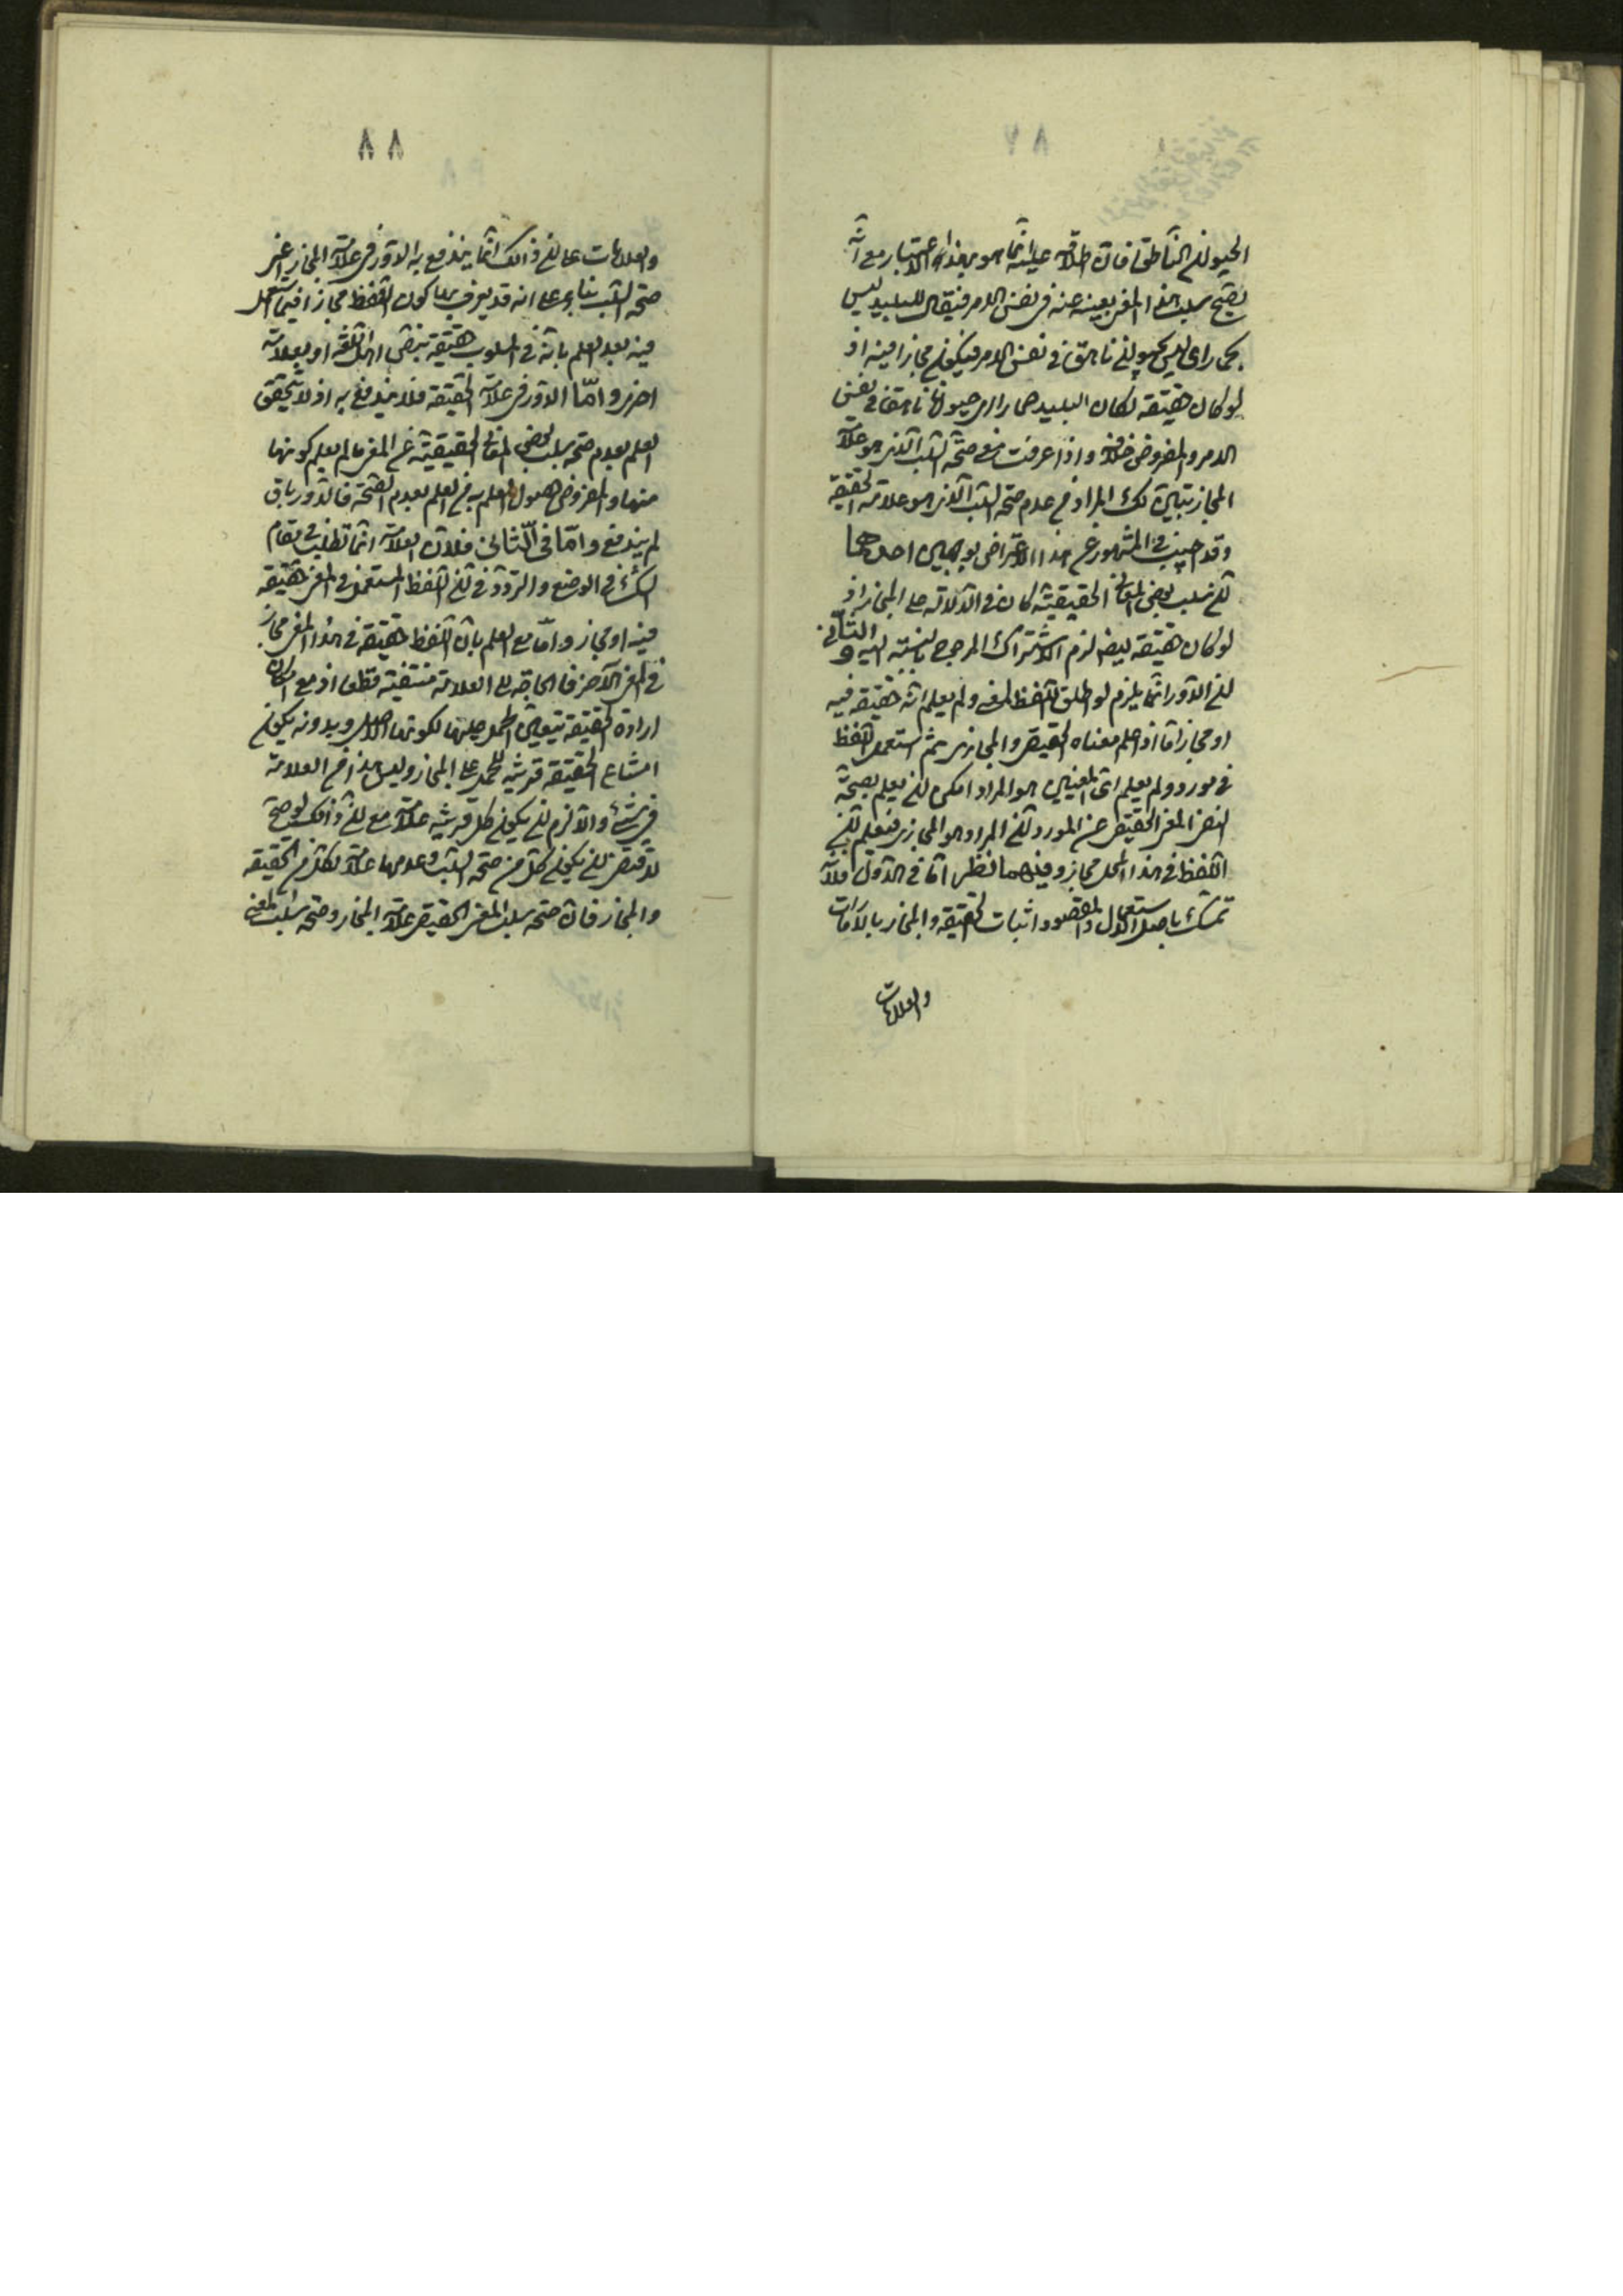 ٨٧
الحيوان الناطق فان اطلاقه عليه انما هو بهذا الاعتبار مع انه
يصح سلب هذا المعنى بعينه عنه في نفس الامر فيقال للبليد ليس
بحمار اى ليس بحيوان ناهق في نفس الامر فيكون مجازا فيه اذ
لو كان حقيقة لكان البليد حمارا اى حيوانا ناهقا في نفس
الامر والمفروض خلافه واذا عرفت معنى صحة السلب الذى هو علامة
المجاز تبين لك المراد من عدم صحة السلب الذى هو علامة الحقيقة
وقد اجيب في المشهور عن هذا الاعتراض بوجهين احدهما
ان سلب بعض المعانى الحقيقية كاف في الدلالة على المجاز اذ
لو كان حقيقة ايضا لزم الاشتراك المرجوح بالنسبة اليه و الثانى
ان الدور انما يلزم لو اطلق اللفظ لمعنى ولم يعلم انه حقيقة فيه
او مجاز اما اذا علم معناه الحقيقى والمجازى ثم استعمل اللفظ
في مورد ولم يعلم اى المعنيين هو المراد امكن ان يعلم بصحة
نفى المعنى الحقيقى عن المورد ان المراد هو المجازى فيعلم ان
اللفظ في هذا المحل مجاز وفيهما نظر اما في الاول فلانه
تمسك باصل الاستعمال والمقصود اثبات الحقيقة والمجاز بالامارات
والعلامات
٨٨
والعلامات على ان ذلك انما يندفع به الدور في علامة المجاز اعنى
صحة السلب بناء على انه قد يعرف بها كون اللفظ مجازا فيما استعمل
فيه بعد العلم بانه في المسلوب حقيقة بنص اهل اللغة او بعلامة
اخرى واما الدور في علامة الحقيقة فلا يندفع به اذ لا يتحقق
العلم بعدم صحة سلب بعض المعانى الحقيقية عن المعنى ما لم يعلم كونها
منها والمفروض حصول العلم به من العلم بعدم الصحة فالدور باق
لم يندفع واما في الثانى فلان العلامة انما تطلب في مقام
الشك في الوضع والتردد في ان اللفظ المستعمل في المعنى حقيقة
فيه او مجاز واما مع العلم بان اللفظ حقيقة في هذا المعنى مجاز
في المعنى الآخر فالحاجة الى العلامة منتفية قطعا اذ مع امكان
ارادة الحقيقة يتعين الحمل عليها لكونها الاصل وبدونه يكون
امتناع الحقيقة قرينة للحمل على المجاز وليس هذا من العلامة
في شئ والا لزم ان يكون كل قرينة علامة مع ان ذلك لو صح
لاقتضى ان يكون كل من صحة السلب وعدمها علامة لكل من الحقيقة
والمجاز فان صحة سلب المعنى الحقيقى علامة المجاز وصحة سلب المعنى